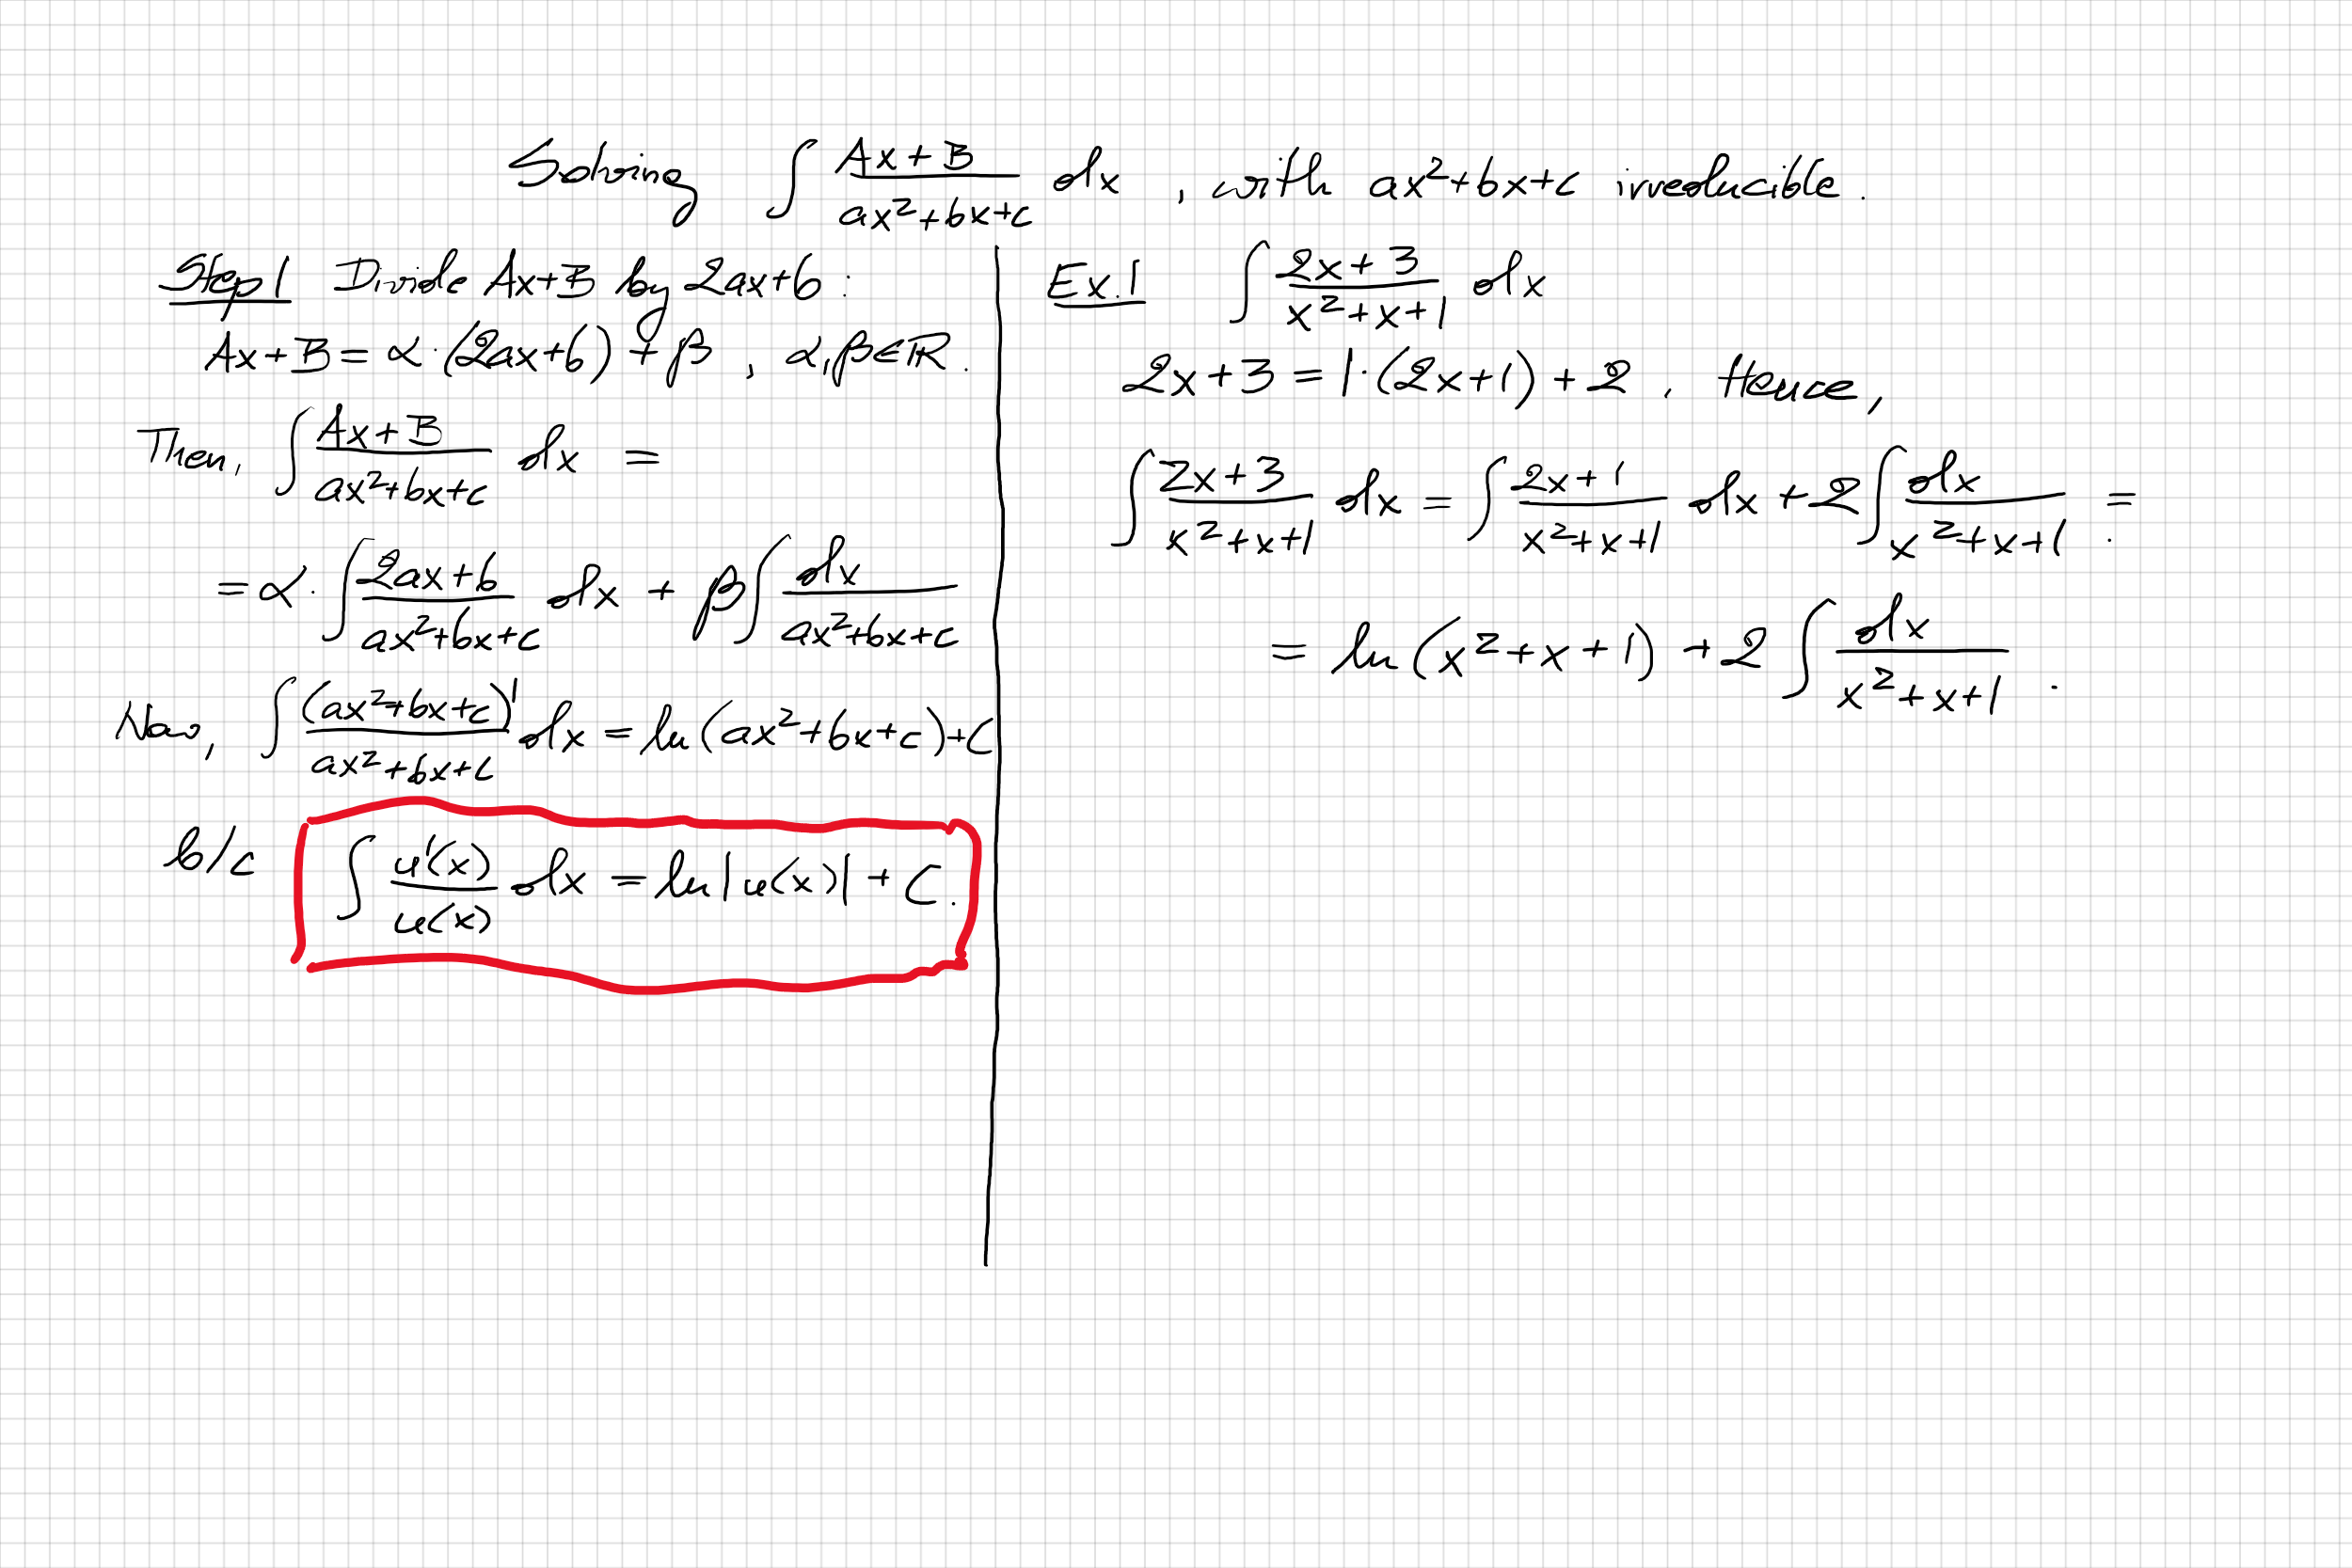 Solving ∫ (Ax+B)/(ax²+bx+c) dx , with ax²+bx+c irreducible.
Step 1 Divide Ax+B by 2ax+b :
Ax+B = α·(2ax+b) + β , α,β∈ℝ.
Then, ∫ (Ax+B)/(ax²+bx+c) dx =
= α· ∫ (2ax+b)/(ax²+bx+c) dx + β ∫ dx/(ax²+bx+c)
Now, ∫ (ax²+bx+c)'/(ax²+bx+c) dx = ln(ax²+bx+c)+C
b/c ∫ u'(x)/u(x) dx = ln|u(x)| + C.
Ex.1 ∫ (2x+3)/(x²+x+1) dx
2x+3 = 1·(2x+1) + 2 . Hence,
∫ (2x+3)/(x²+x+1) dx = ∫ (2x+1)/(x²+x+1) dx + 2 ∫ dx/(x²+x+1) =
= ln(x²+x+1) + 2 ∫ dx/(x²+x+1) .